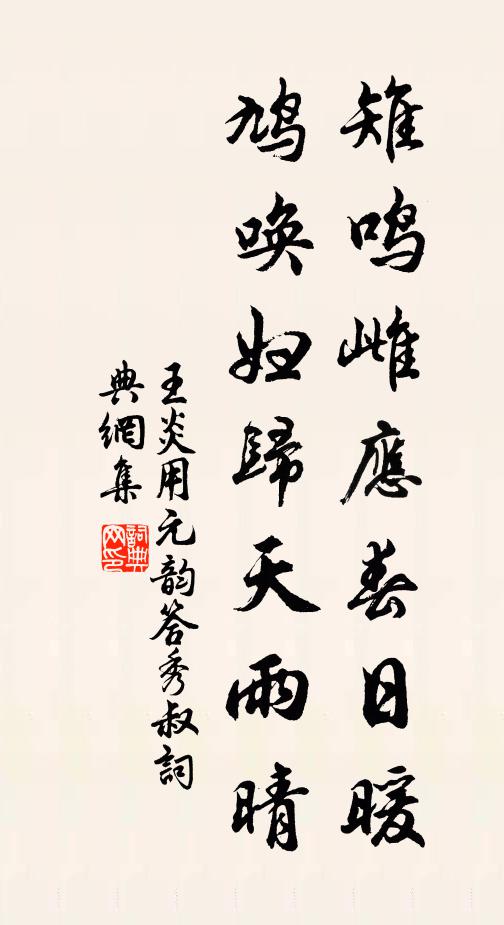 雉鳴雌應春日暖
鳩喚妇歸天雨晴
王炎用元韵答秀叔詞
典網集
詞典
网印